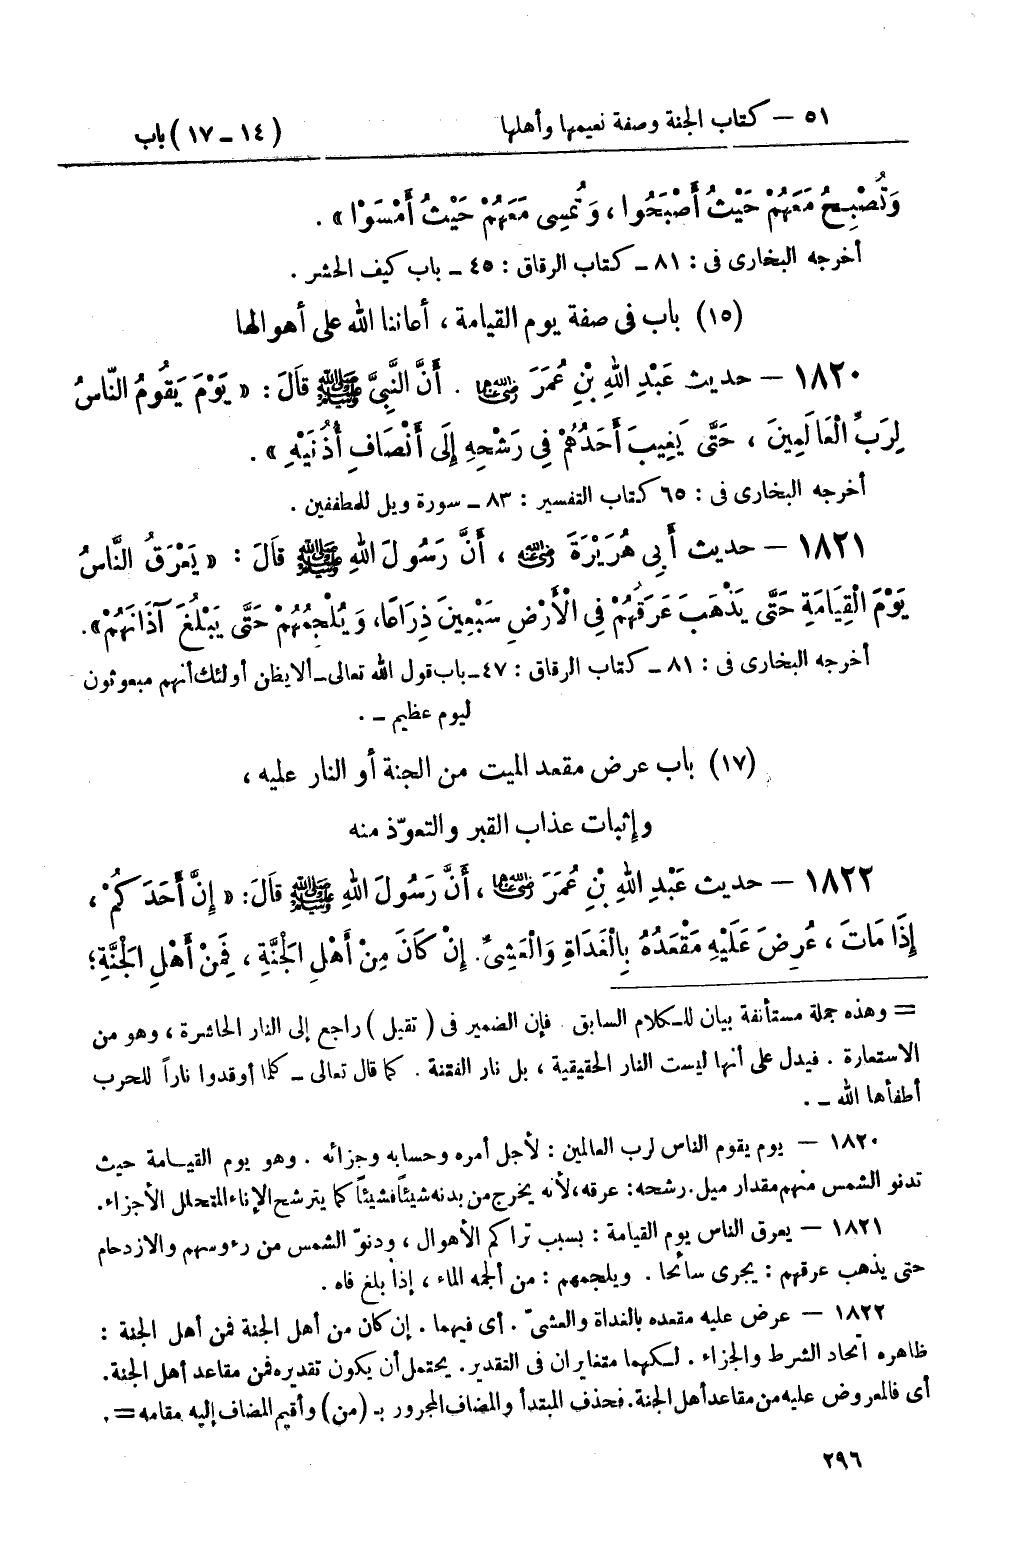 ٥١ – كتاب الجنة وصفة نعيمها وأهلها (١٤ – ١٧) باب
وَتُصْبِحُ مَعَهُمْ حَيْثُ أَصْبَحُوا ، وَتُمْسِى مَعَهُمْ حَيْثُ أَمْسَوْا » .
أخرجه البخارى فى : ٨١ ـ كتاب الرقاق : ٤٥ ـ باب كيف الحشر .
(١٥) باب فى صفة يوم القيامة ، أعاننا الله على أهوالها
١٨٢٠ – حديث عَبْدِ اللهِ بْنِ عُمَرَ رضي الله عنهما . أَنَّ النَّبِىَّ ﷺ قَالَ : « يَوْمَ يَقُومُ النَّاسُ
لِرَبِّ الْعَالَمِينَ ، حَتَّى يَغِيبَ أَحَدُهُمْ فِى رَشْحِهِ إِلَى أَنْصَافِ أُذُنَيْهِ » .
أخرجه البخارى فى : ٦٥ كتاب التفسير : ٨٣ ـ سورة ويل للمطففين .
١٨٢١ – حديث أَبِى هُرَيْرَةَ رضي الله عنه ، أَنَّ رَسُولَ اللهِ ﷺ قَالَ : « يَعْرَقُ النَّاسُ
يَوْمَ الْقِيَامَةِ حَتَّى يَذْهَبَ عَرَقُهُمْ فِى الْأَرْضِ سَبْعِينَ ذِرَاعًا، وَيُلْجِمُهُمْ حَتَّى يَبْلُغَ آذَانَهُمْ».
أخرجه البخارى فى : ٨١ ـ كتاب الرقاق : ٤٧ ـ باب قول الله تعالى ـ ألا يظن أولئك أنهم مبعوثون
ليوم عظيم ـ .
(١٧) باب عرض مقعد الميت من الجنة أو النار عليه ،
وإثبات عذاب القبر والتعوّذ منه
١٨٢٢ – حديث عَبْدِ اللهِ بْنِ عُمَرَ رضي الله عنهما ، أَنَّ رَسُولَ اللهِ ﷺ قَالَ: « إِنَّ أَحَدَكُمْ ،
إِذَا مَاتَ ، عُرِضَ عَلَيْهِ مَقْعَدُهُ بِالْغَدَاةِ وَالْعَشِىِّ. إِنْ كَانَ مِنْ أَهْلِ الْجَنَّةِ ، فَمِنْ أَهْلِ الْجَنَّةِ؛
= وهذه جملة مستأنفة بيان للكلام السابق . فإن الضمير فى ( تقيل ) راجع إلى النار الحاشرة ، وهو من
الاستعارة . فيدل على أنها ليست النار الحقيقية ، بل نار الفتنة . كما قال تعالى ـ كلما أوقدوا ناراً للحرب
أطفأها الله ـ .
١٨٢٠ – يوم يقوم الناس لرب العالمين : لأجل أمره وحسابه وجزائه . وهو يوم القيامة حيث
تدنو الشمس منهم مقدار ميل. رشحه: عرقه، لأنه يخرج من بدنه شيئاً فشيئاً كما يترشح الإناء المتحلل الأجزاء.
١٨٢١ – يعرق الناس يوم القيامة : بسبب تراكم الأهوال ، ودنوّ الشمس من رءوسهم والازدحام
حتى يذهب عرقهم : يجرى سائحا . ويلجمهم : من ألجمه الماء ، إذا بلغ فاه .
١٨٢٢ – عرض عليه مقعده بالغداة والعشىّ . أى فيهما . إن كان من أهل الجنة فمن أهل الجنة :
ظاهره اتحاد الشرط والجزاء . لكنهما متغايران فى التقدير . يحتمل أن يكون تقديره فمن مقاعد أهل الجنة.
أى فالمعروض عليه من مقاعد أهل الجنة. فحذف المبتدأ والمضاف المجرور بـ (من) وأقيم المضاف إليه مقامه =
٢٩٦